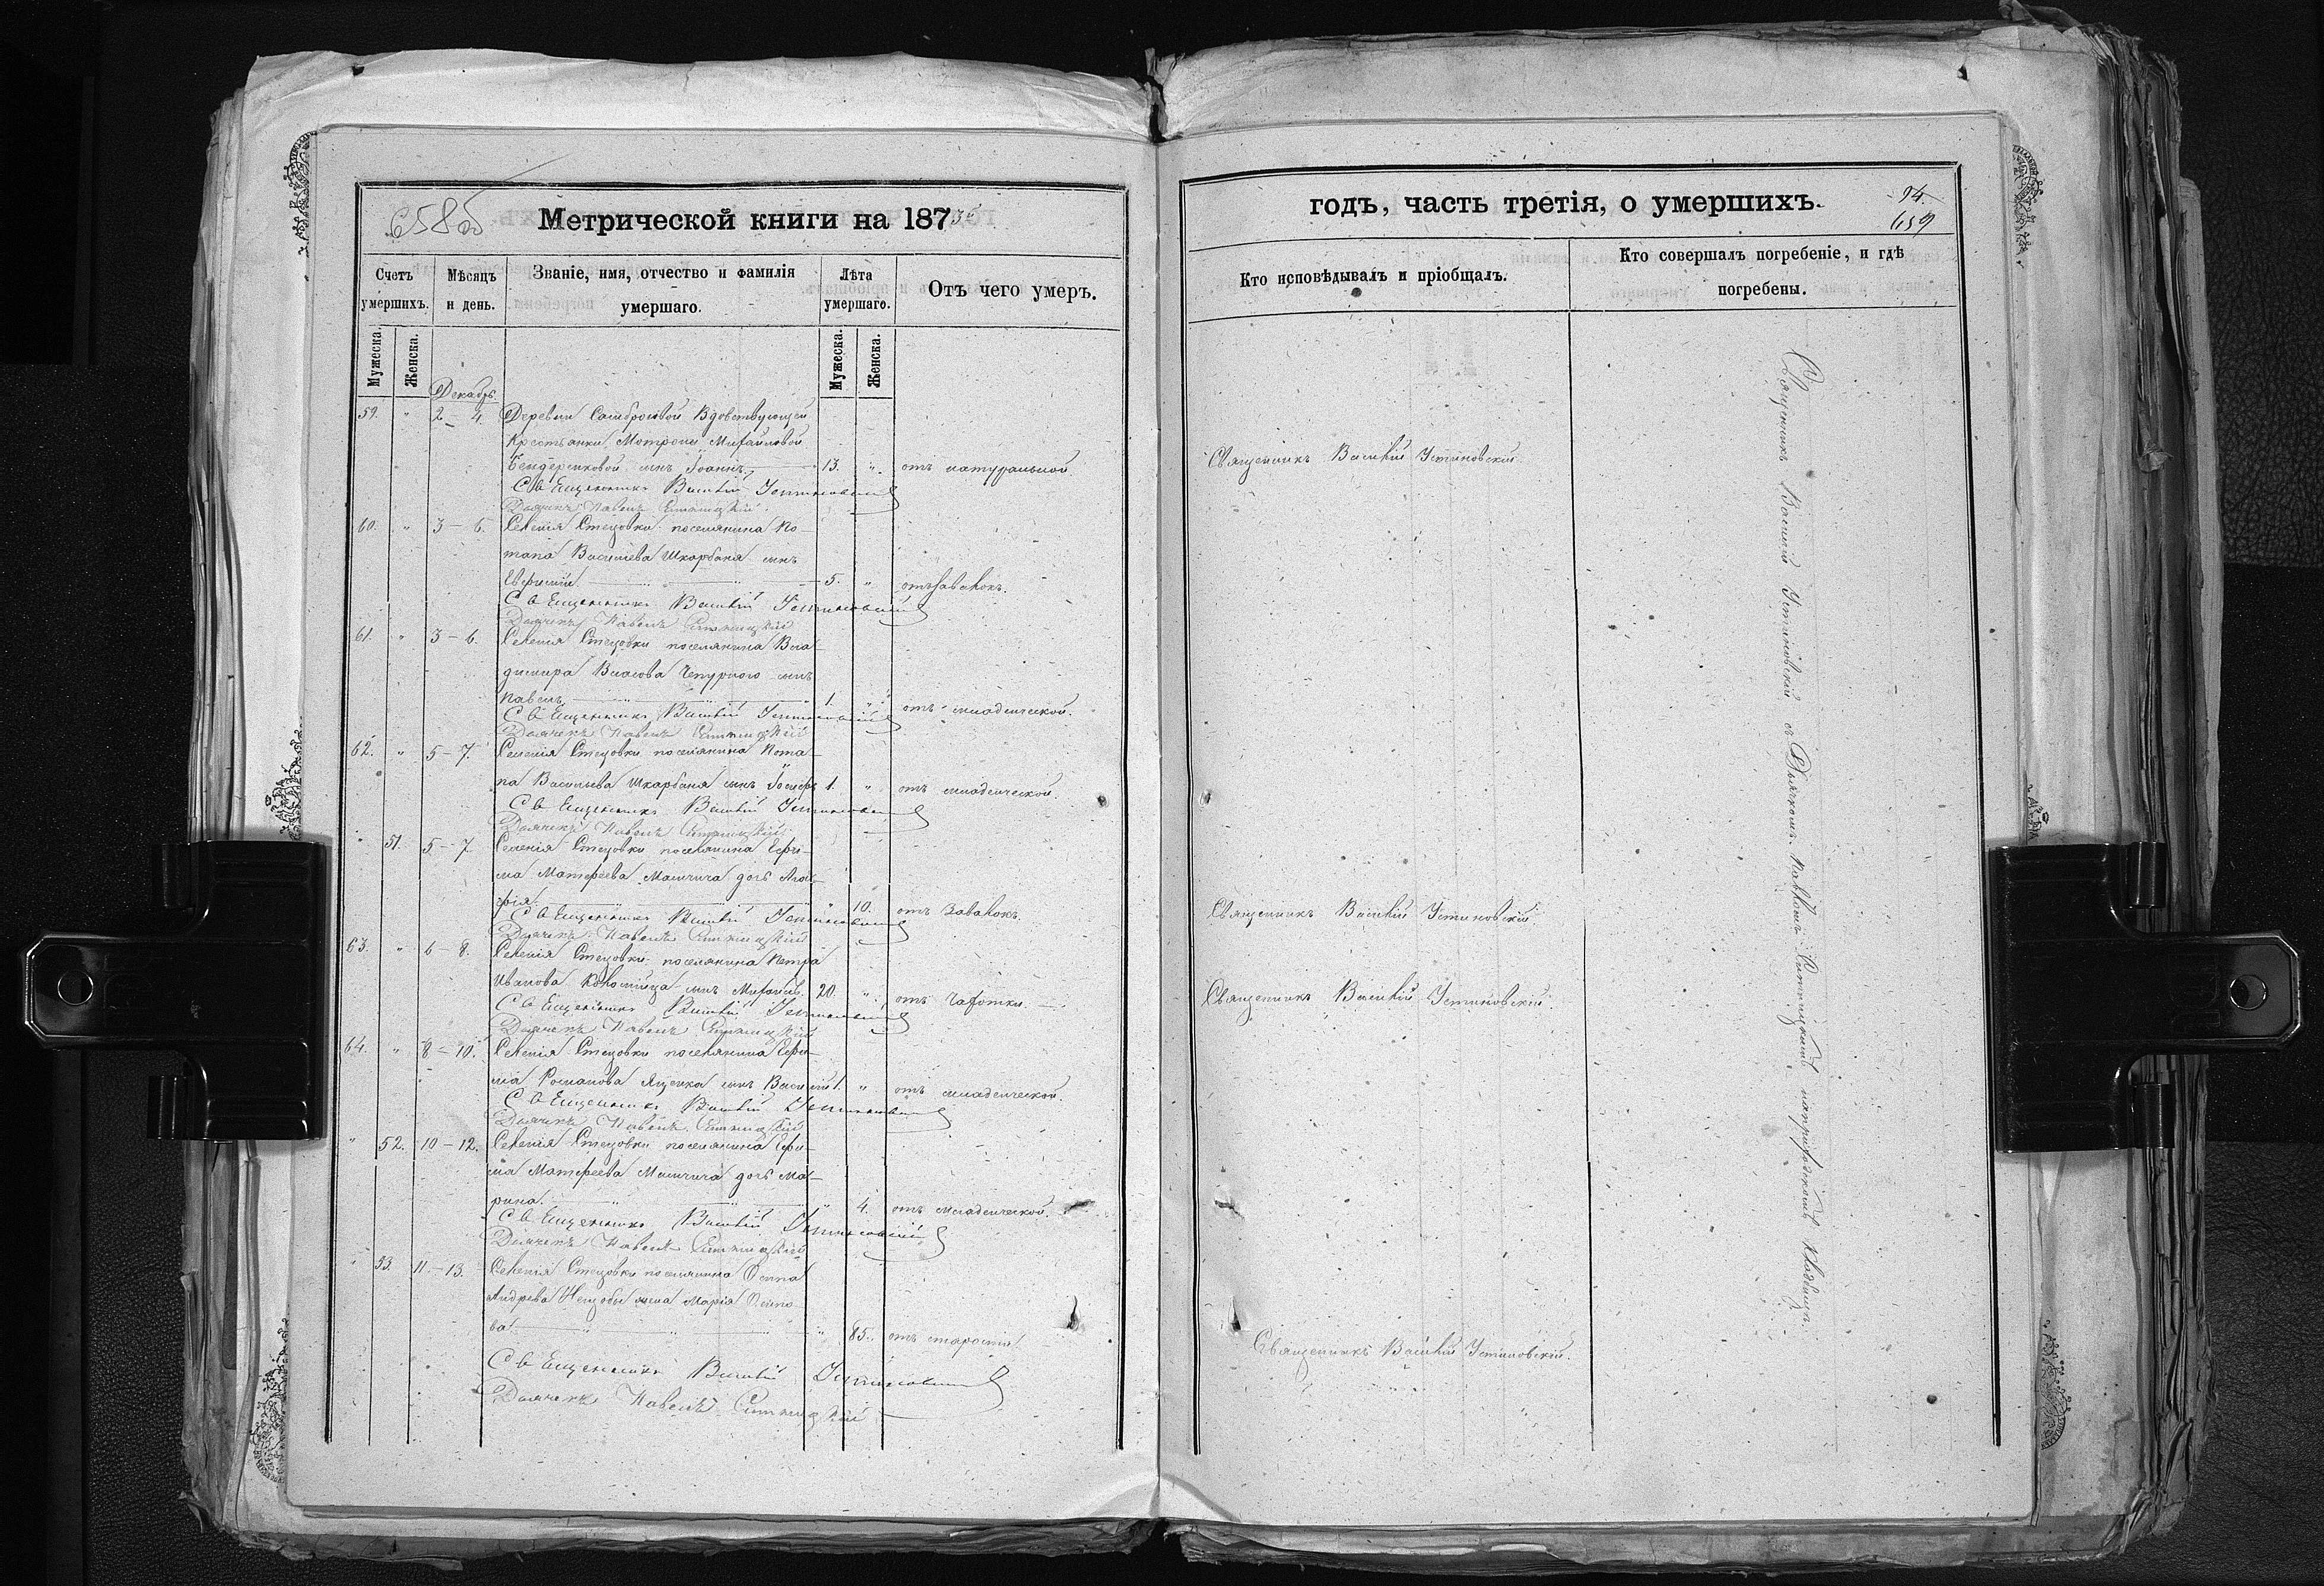 658 об
Метрической книги на 1875
Счетъ умершихъ.
Мѣсяцъ и день.
Званіе, имя, отчество и фамилія умершаго.
Лѣта умершаго.
Отъ чего умеръ.
Мужеска.
Женска.
Мужеска.
Женска.
Декабрь
59. " 2 – 4. Деревни Вдовствующей
Крестьянки Мотроны Михайловой
сынъ Іоаннъ 13. " отъ натуральной
Священникъ Василій Устиновскій
Дьячекъ Павелъ Ситницкій
60. " 3 – 6. Селенія Стецовки поселянина По-
тапа Васильева Шкарбана сынъ
Евфимій 5. " отъ завалокъ.
Священникъ Василій Устиновскій
Дьячекъ Павелъ Ситницкій
61. " 3 – 6. Селенія Стецовки поселянина Вла-
димира Власова Чепурного сынъ
Павелъ 1. " отъ младенческой.
Священникъ Василій Устиновскій
Дьячекъ Павелъ Ситницкій
62. " 5 – 7. Селенія Стецовки поселянина Пота-
па Васильева Шкарбана сынъ Іосифъ 1. " отъ младенческой.
Священникъ Василій Устиновскій
Дьячекъ Павелъ Ситницкій
" 51. 5 – 7 Селенія Стецовки поселянина Ефи-
ма Матфеева дочь Ага-
фія " 10. отъ завалокъ.
Священникъ Василій Устиновскій
Дьячекъ Павелъ Ситницкій
63. " 6 – 8. Селенія Стецовки поселянина Петра
Иванова Коломійца сынъ Михаилъ. 20. " отъ чахотки.
Священникъ Василій Устиновскій
Дьячекъ Павелъ Ситницкій
64. " 8 – 10. Селенія Стецовки поселянина Ефи-
ма Романова Яценка сынъ Василій 1. " отъ младенческой.
Священникъ Василій Устиновскій
Дьячекъ Павелъ Ситницкій
" 52. 10 – 12. Селенія Стецовки поселянина Ефи-
ма Матфеева дочь Ма-
рина. " 4. отъ младенческой.
Священникъ Василій Устиновскій
Дьячекъ Павелъ Ситницкій
" 53. 11 – 13. Селенія Стецовки поселянина Осипа
Андреева жена Марія Осипо-
ва " 85. отъ старости
Священникъ Василій Устиновскій
Дьячекъ Павелъ Ситницкій
годъ, часть третія, о умершихъ.
94.
659
Кто исповѣдывалъ и пріобщалъ.
Кто совершалъ погребеніе, и гдѣ погребены.
Священникъ Василій Устиновскій
Священникъ Василій Устиновскій
Священникъ Василій Устиновскій.
Священникъ Василій Устиновскій.
Священникъ Василій Устиновскій съ Дьячкомъ Павломъ Ситницкимъ на приходскомъ кладбищѣ.